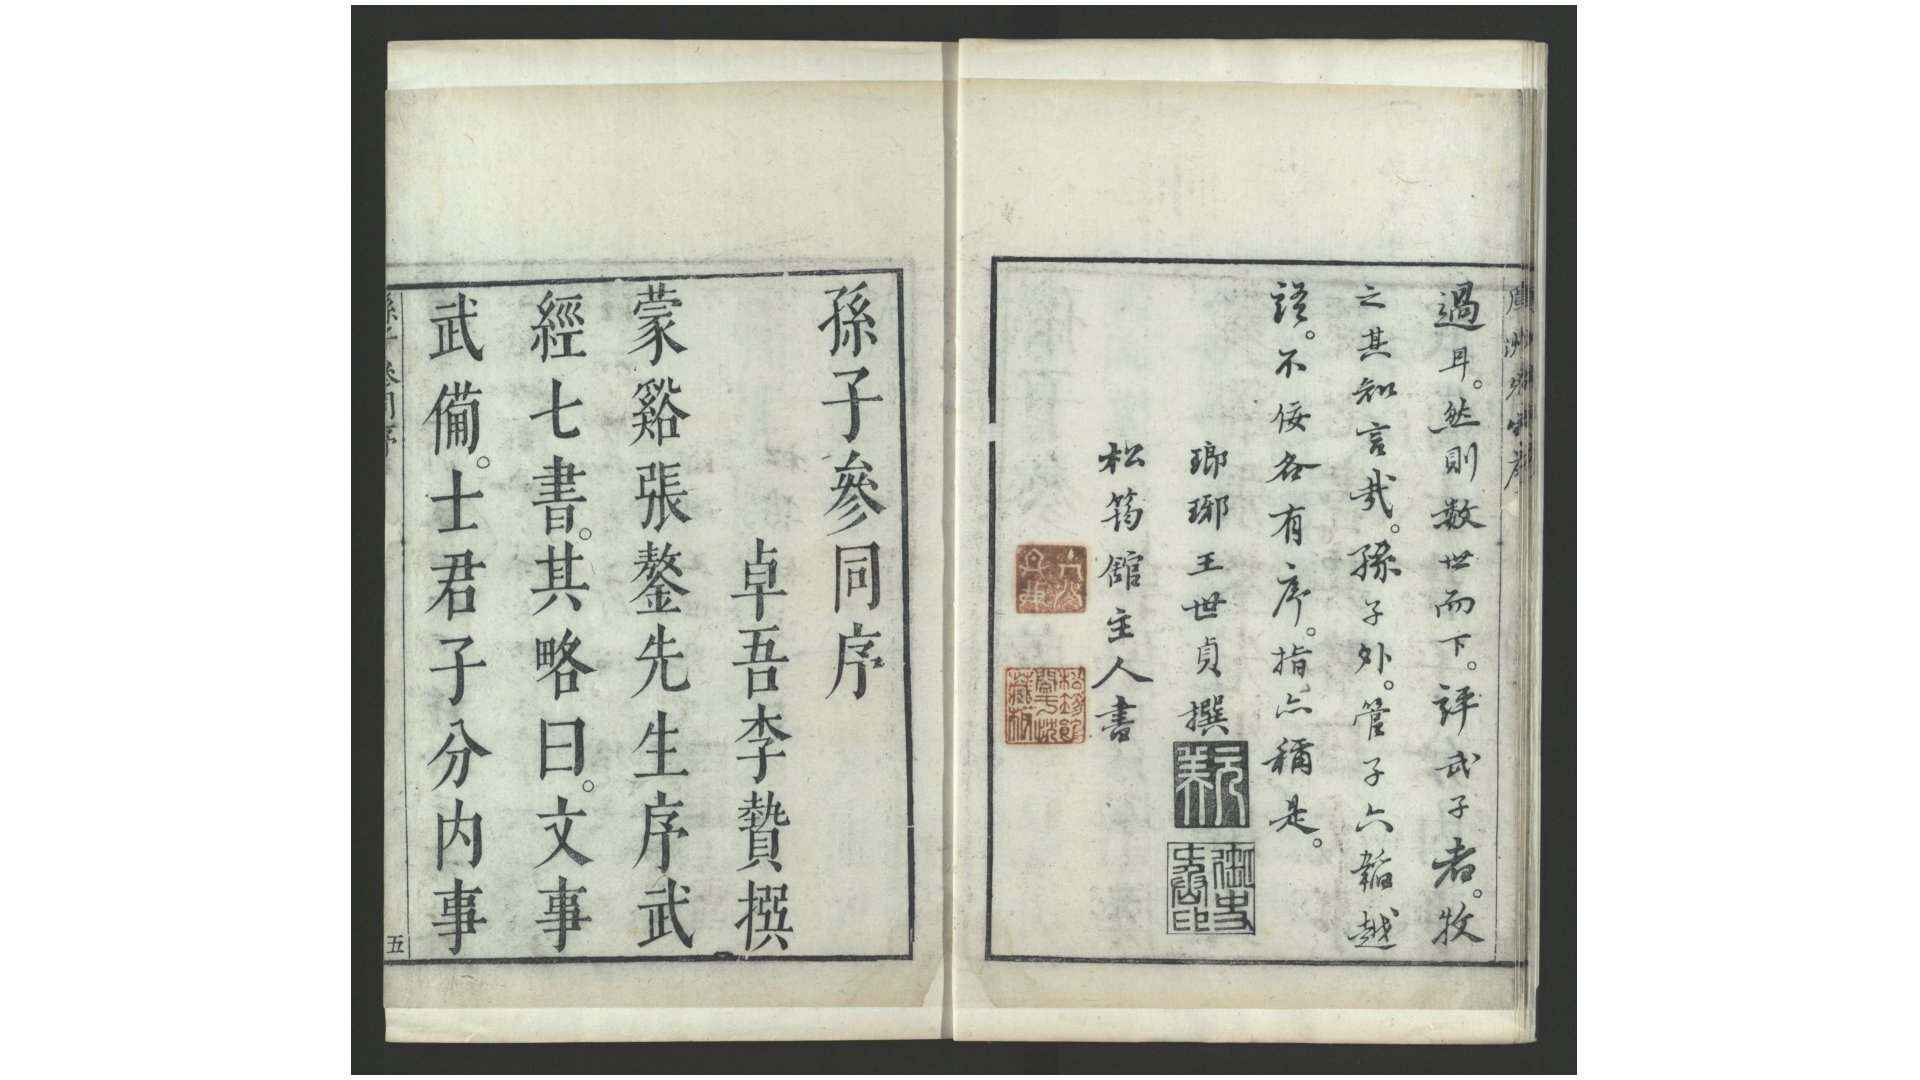 過耳。然則数世而下。評武子者。牧
之其知言哉。孫子外。管子六韜越
語。不佞各有序。指亦稱是。
瑯琊王世貞撰
元美
松筠館主人書
孫子參同序
卓吾李贄撰
蒙谿張鏊先生序武
經七書。其略曰。文事
武備。士君子分內事
五